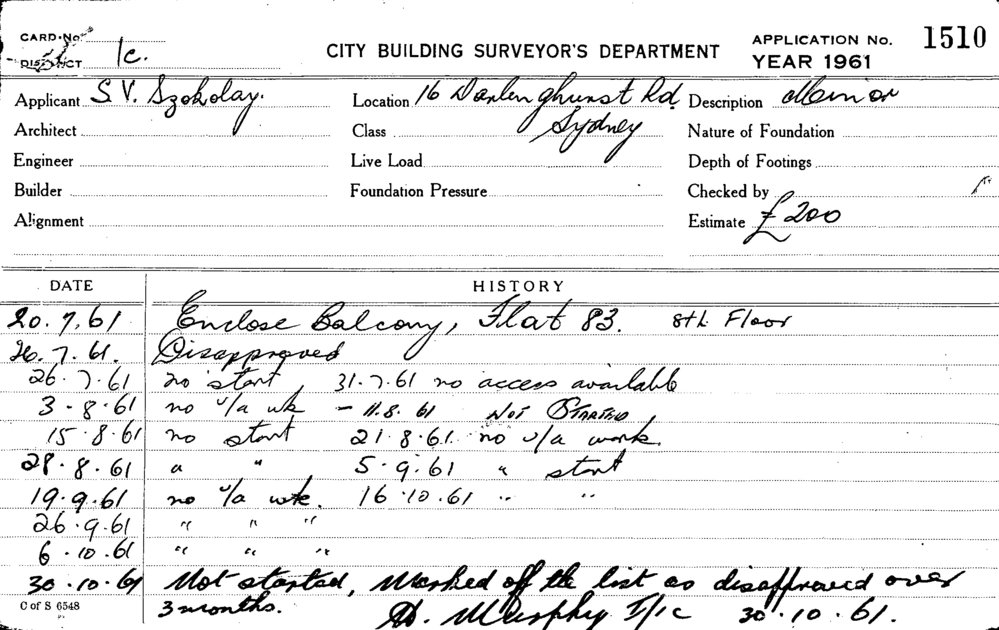 CARD No. APPLICATION No. 1510
DISTRICT 1c. CITY BUILDING SURVEYOR'S DEPARTMENT YEAR 1961
Applicant S. V. Szokolay. Location 16 Darlinghurst Rd. Description Minor
Architect Class Sydney Nature of Foundation
Engineer Live Load Depth of Footings
Builder Foundation Pressure Checked by
Alignment Estimate £200
DATE HISTORY
20.7.61 Enclose Balcony, Flat 83. 8th Floor
26.7.61. Disapproved
26.7.61 no start, 31.7.61 no access available
3.8.61 no u/a wk - 11.8.61 Not Started
15.8.61 no start 21.8.61. no u/a work.
28.8.61 " " 5.9.61 " start
19.9.61 no u/a wk. 16.10.61 " "
26.9.61 " " "
6.10.61 " " "
30.10.61 Not started, Marked off the list as disapproved over
C of S 6548 3 months. Murphy 30.10.61.